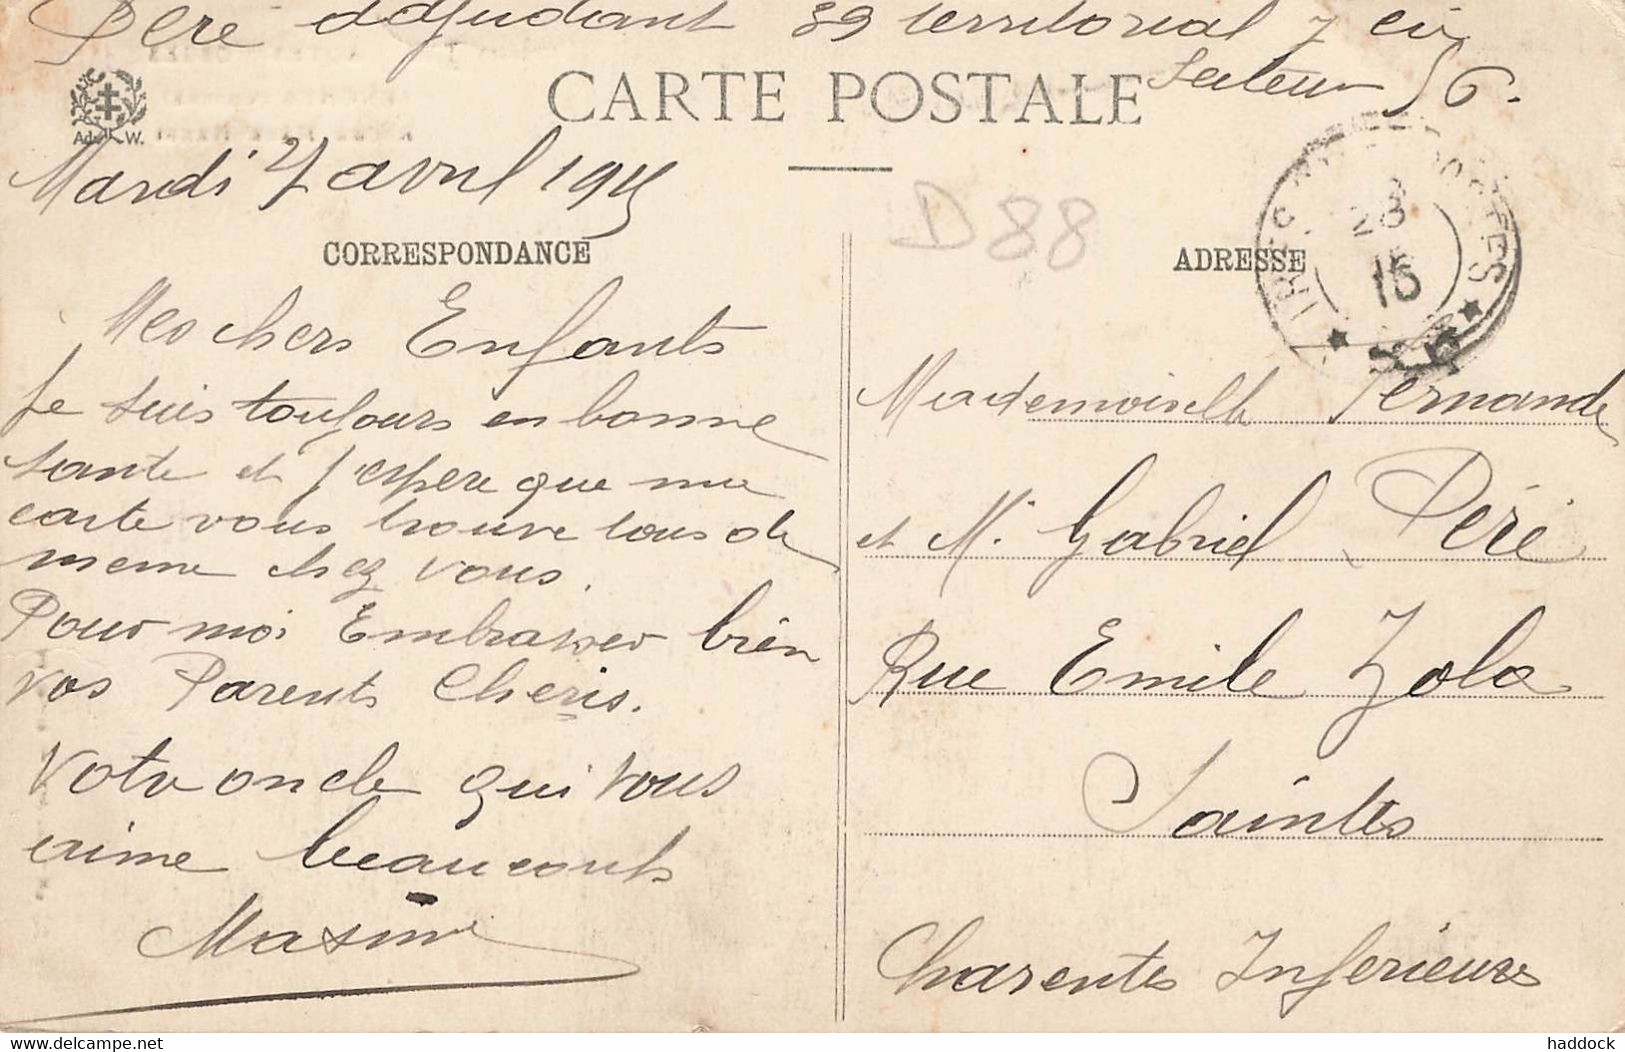 Péré adjudant 89 territorial 7 cie
Secteur 56.
CARTE POSTALE
Ad. W.
Mardi 27 avril 1915
D88
CORRESPONDANCE
ADRESSE
28
15
Mes chers Enfants
Je suis toujours en bonne
sante et j'espere que ma
carte vous trouve tous de
meme chez vous.
Pour moi Embrasser bien
vos Parents Cheris.
Votre oncle qui vous
aime beaucoups
Maxime
Mademoiselle Fernande
et M. Gabriel Péré
Rue Emile Zola
Saintes
Charentes Inferieures
https://www.delcampe.net
haddock